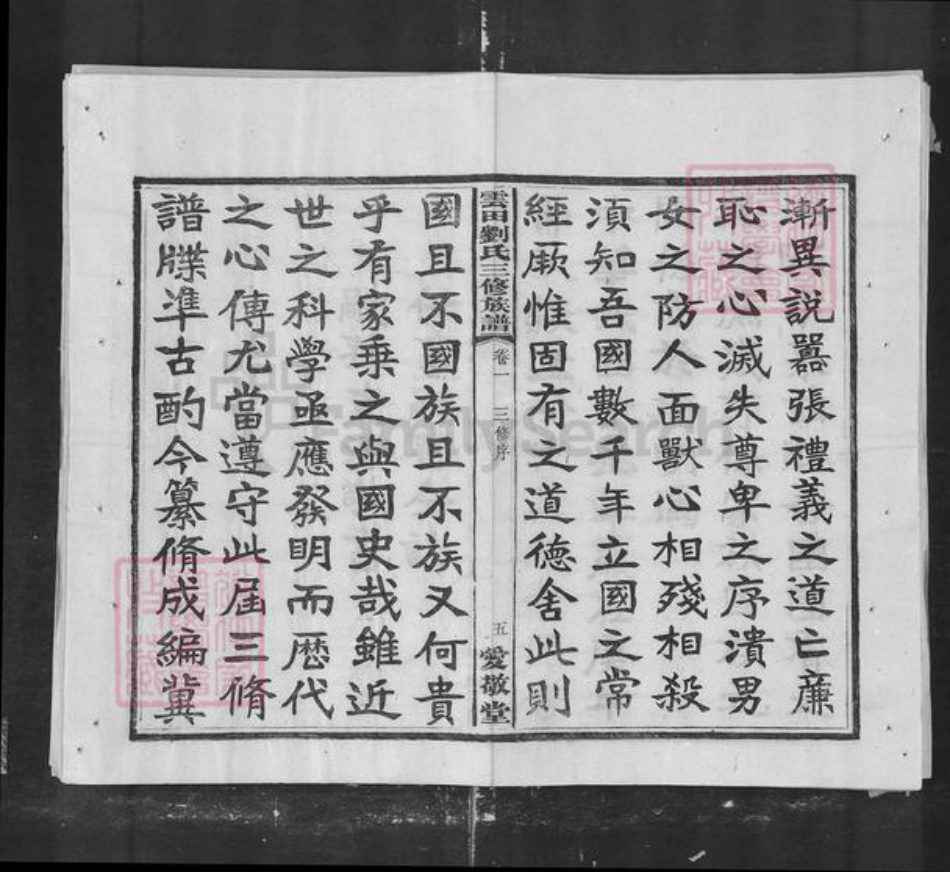 漸異說囂張禮義之道亡廉
恥之心滅失尊卑之序潰男
女之防人面獸心相殘相殺
須知吾國數千年立國之常
經厥惟固有之道德舍此則
雲田劉氏三修族譜 卷一 三修序 五 愛敬堂
國且不國族且不族又何貴
乎有家乘之與國史哉雖近
世之科學亟應發明而歷代
之心傳尤當遵守此屆三脩
譜牒準古酌今纂脩成編冀
FamilySearch